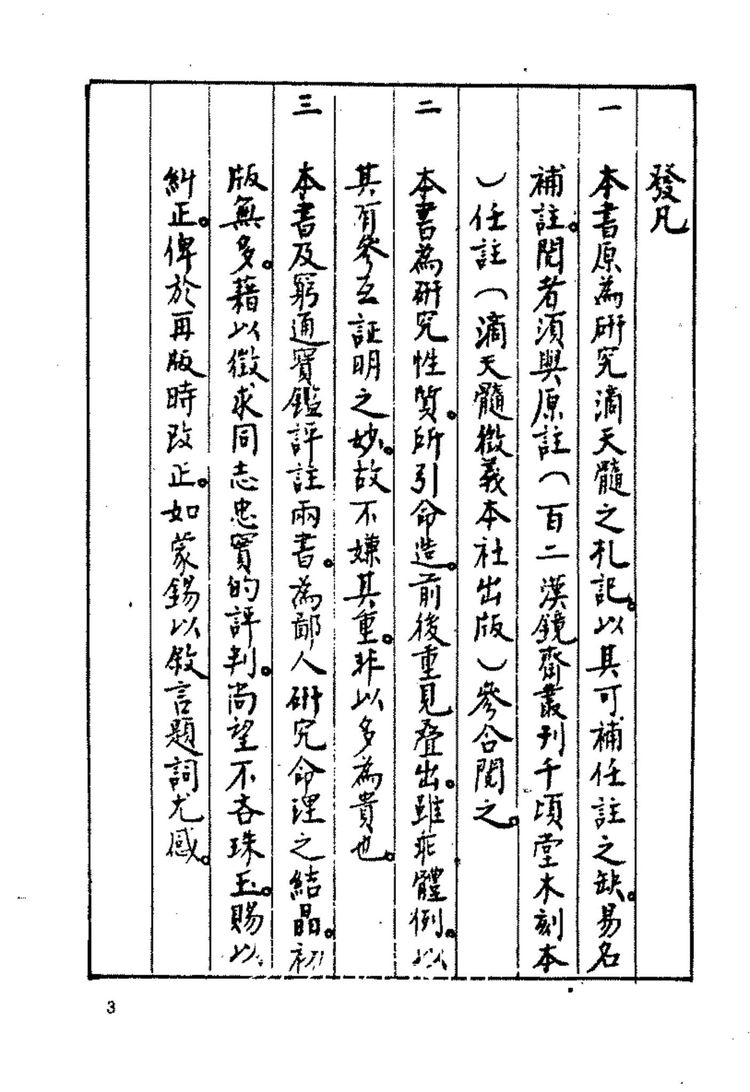 發凡
一 本書原為研究滴天髓之札記。以其可補任註之缺。易名
補註。閱者須與原註（百二漢鏡齋叢刊千頃堂木刻本
）任註（滴天髓徵義本社出版）參合閱之。
二 本書為研究性質。所引命造。前後重見叠出。雖乖體例。以
其有參互証明之妙。故不嫌其重。非以多為貴也。
三 本書及窮通寶鑑評註兩書。為鄙人研究命理之結晶。初
版無多。藉以徵求同志忠實的評判。尚望不吝珠玉。賜以
糾正。俾於再版時改正。如蒙錫以敘言題詞尤感。
3